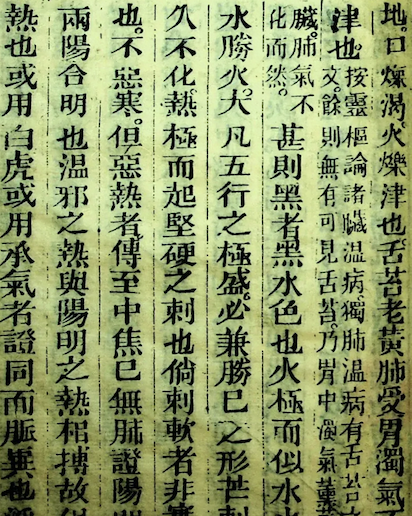 地。口燥渴。火爍津也。舌苔老黃肺受胃濁氣
津也。
按靈樞論諸臟温病獨肺温病有舌苔之
文。餘則無有可見舌苔。乃胃中濁氣薰
臟。肺氣不
化而然。
甚則黑者黑水色也火極而似水水
水勝火。大凡五行之極盛。必兼勝已之形芒刺
久不化。熱極而起堅硬之刺也倘刺軟者非實
也。不惡寒。但惡熱者。傳至中焦已無肺證陽明
兩陽合明也温邪之熱與陽明之熱相搏故但
熱也或用白虎或用承氣者證同而脈異也